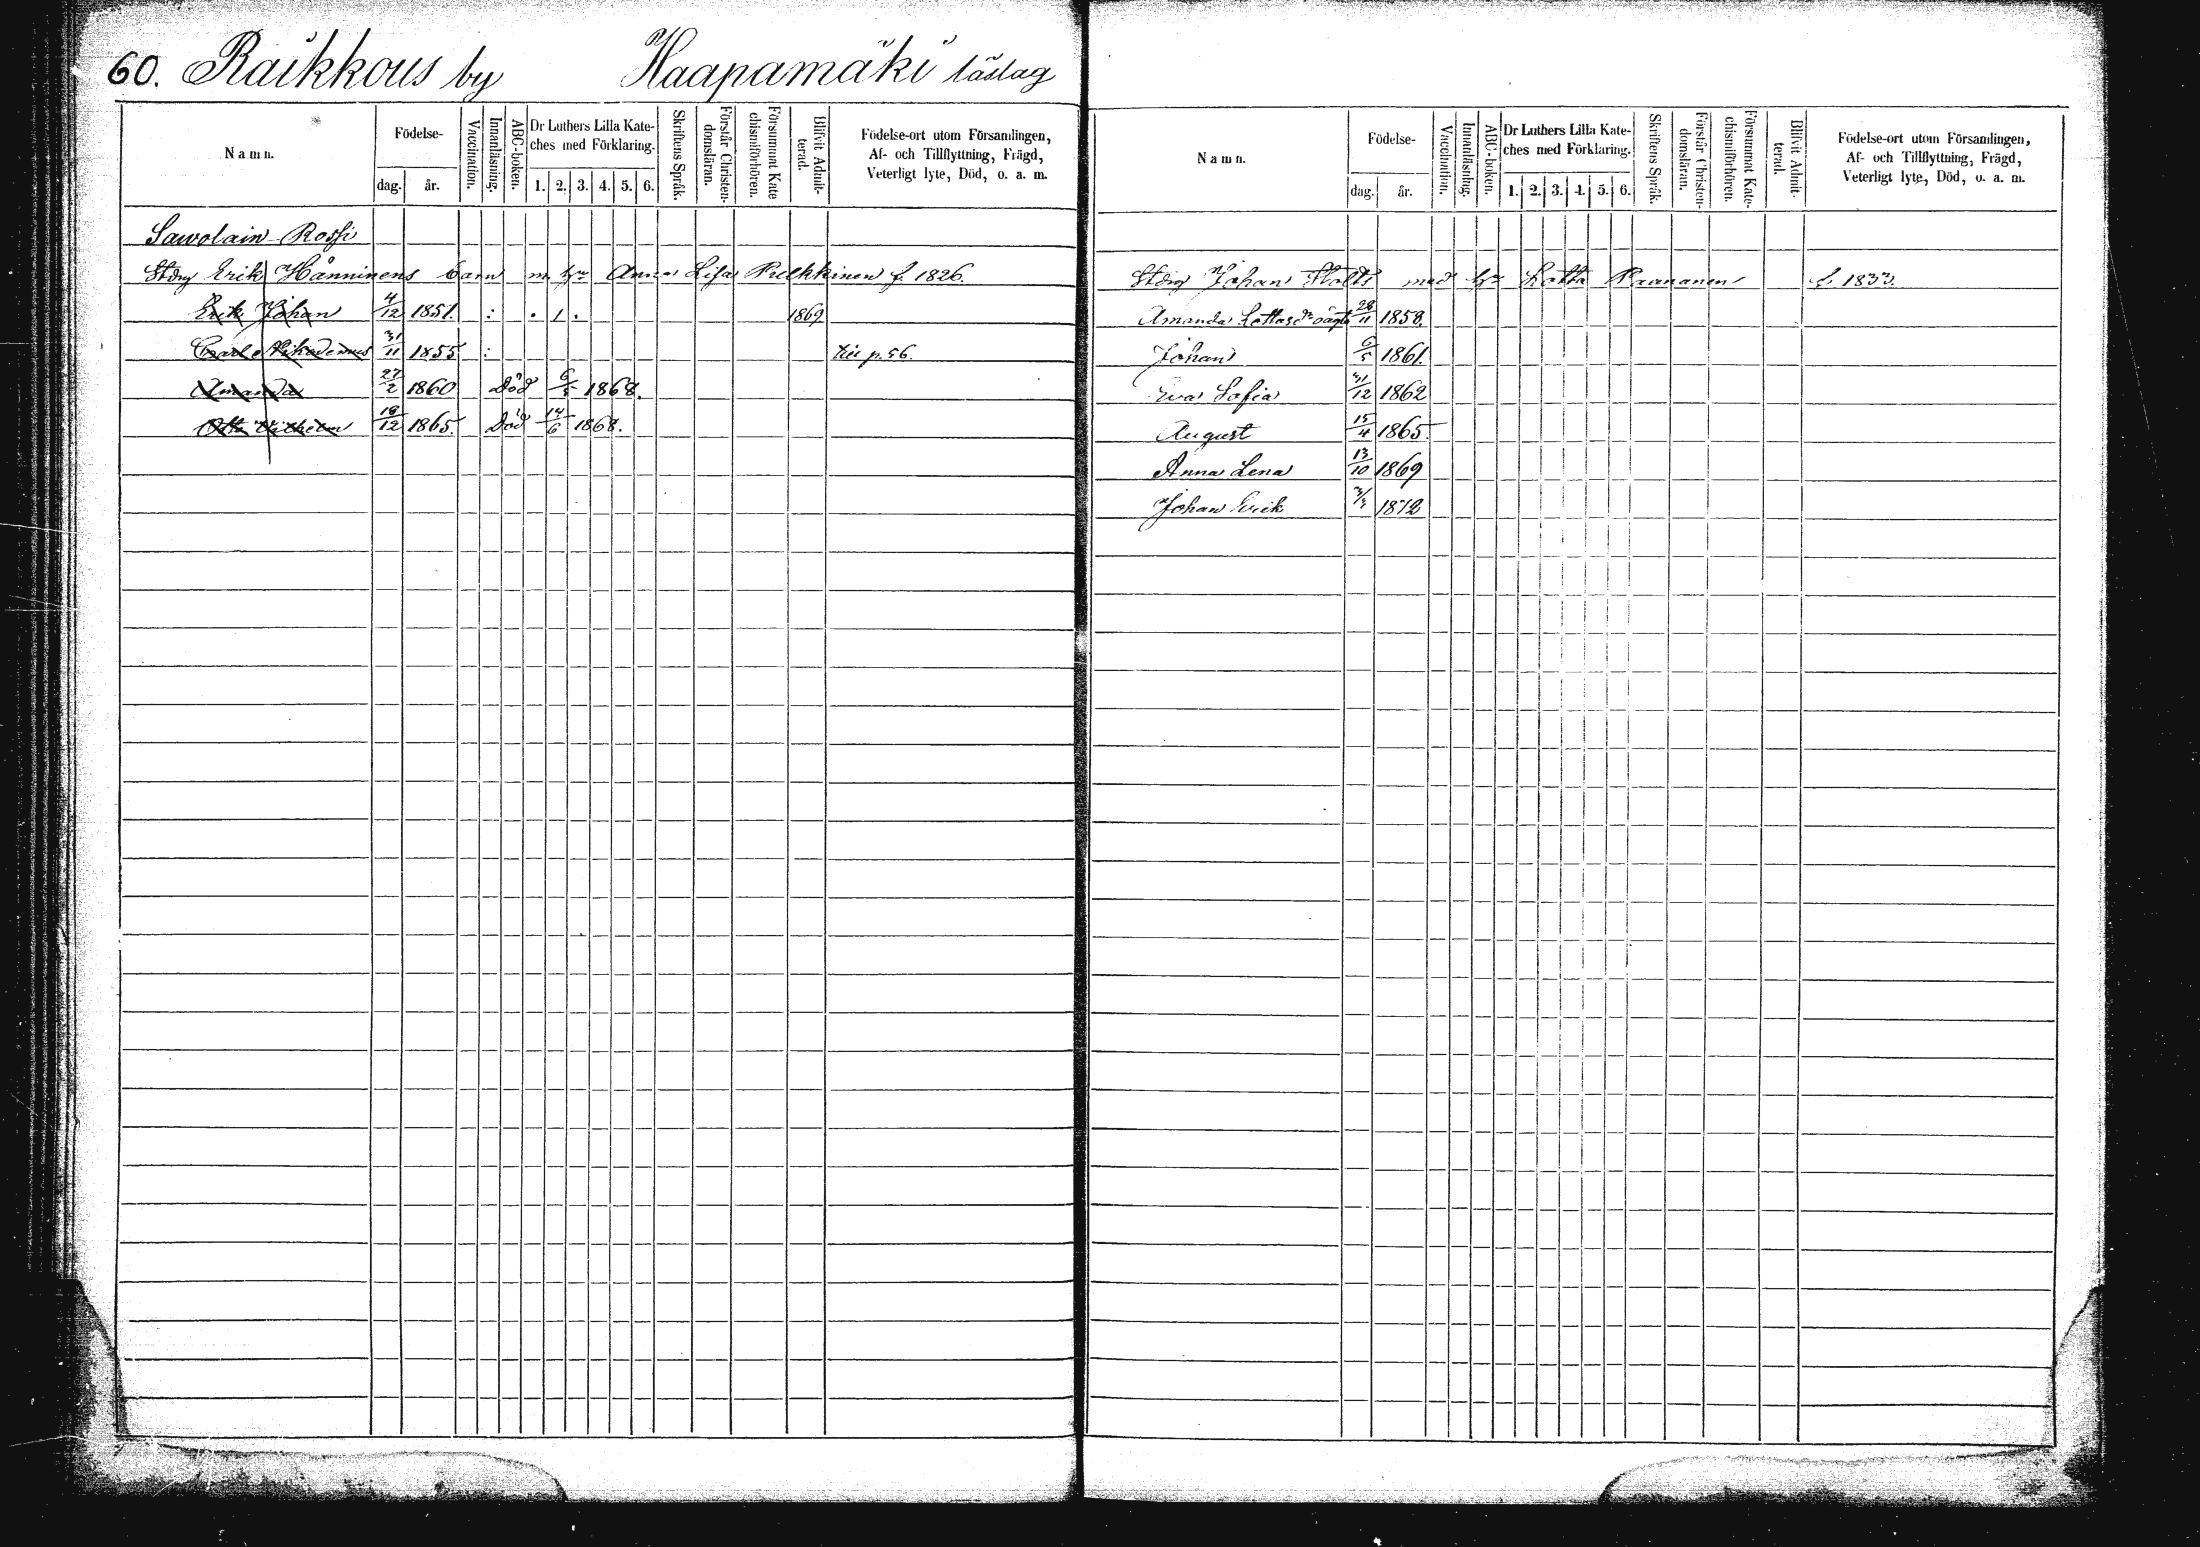 60. Räikkous by Haapamäki läslag
Namn.
Födelse-
dag. år.
Vaccination.
Innanläsning.
ABC-boken.
Dr Luthers Lilla Kate-
ches med Förklaring.
1. 2. 3. 4. 5. 6.
Skriftens Språk.
Förstår Christen-
domsläran.
Försummat Kate
chismiförhören.
Blifvit Admit-
terad.
Födelse-ort utom Församlingen,
Af- och Tillflyttning, Frägd,
Veterligt lyte, Död, o. a. m.
Sawolain Rossi
Stdrg Erik Hänninens barn m. hu Anna Lisa Pulkkinen f. 1826.
Erik Johan 4/12 1851. : . 1 . 1869
Carl Nikodemus 31/11 1855 : p. 56.
Amanda 27/2 1860 Död 6/5 1868.
Otto Vilhelm 19/12 1865. Död 14/6 1868.
Namn.
Födelse-
dag. år.
Vaccination.
Innanläsning.
ABC-boken.
Dr Luthers Lilla Kate-
ches med Förklaring.
1. 2. 3. 4. 5. 6.
Skriftens Språk.
Förstår Christen-
domsläran.
Försummat Kate-
chismiförhören.
Blifvit Admit-
terad.
Födelse-ort utom Församlingen,
Af- och Tillflyttning, Frägd,
Veterligt lyte, Död, o. a. m.
Stdrg Johan Stolts med hu Lotta Paananen f. 1833.
Amanda Lottas dr oägta 28/11 1858.
Johan 6/5 1861.
Eva Sofia 31/12 1862
August 15/4 1865.
Anna Lena 13/10 1869
Johan Erik 1872